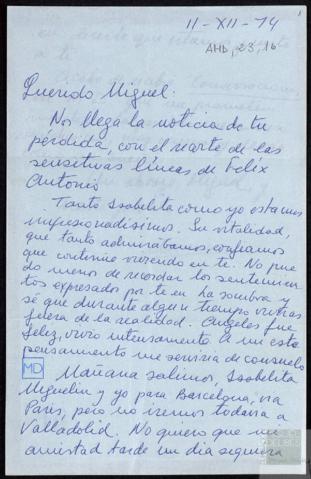 11-XII-74
AMD, 23, 16
Querido Miguel:
Nos llega la noticia de tu
pérdida, con el recorte de las
sensitivas líneas de Felix
Antonio
Tanto Isabelita como yo estamos
impresionadísimos. Su vitalidad,
que tanto admirábamos, confiamos
que continúe viviendo en ti. No pue
do menos de recordar los sentimien
tos expresados por ti en La sombra y
sé que durante algun tiempo vivirás
fuera de la realidad. Angeles fue
feliz, vivió intensamente. A mi este
pensamiento me serviría de consuelo
MD
Mañana salimos, Isabelita
Miguelin y yo para Barcelona, via
Paris, pero no iremos todavia a
Valladolid. No quiero que mi
amistad tarde un dia siquiera